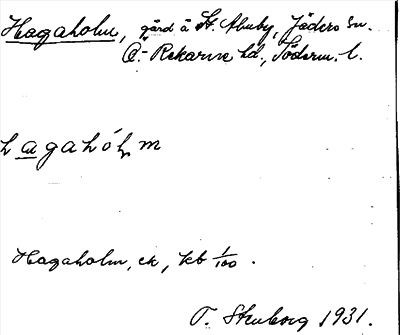 Hagaholm, gård å St. Åluby, Jäders sn.
Ö.-Rekarne hd., Söderm. l.
hagahóḷm
Hagaholm, ek, kb 1/100.
T. Stenborg 1931.